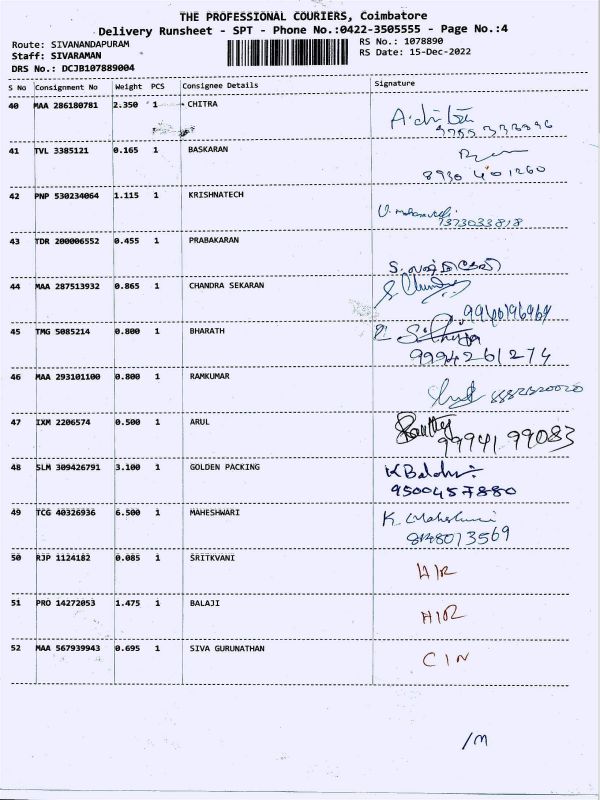 THE PROFESSIONAL COURIERS, Coimbatore
Delivery Runsheet - SPT - Phone No.:0422-3505555 - Page No.:4
Route: SIVANANDAPURAM RS No.: 1078890
Staff: SIVARAMAN RS Date: 15-Dec-2022
DRS No.: DCJB107889004
S No Consignment No Weight PCS Consignee Details Signature
40 MAA 286180781 2.350 1 CHITRA
41 TVL 3385121 0.165 1 BASKARAN
42 PNP 530234064 1.115 1 KRISHNATECH
43 TDR 200006552 0.455 1 PRABAKARAN
44 MAA 287513932 0.865 1 CHANDRA SEKARAN
45 TMG 5085214 0.800 1 BHARATH
9994261274
46 MAA 293101100 0.800 1 RAMKUMAR
47 IXM 2206574 0.500 1 ARUL
99941 99083
48 SLM 309426791 3.100 1 GOLDEN PACKING
9500457880
49 TCG 40326936 6.500 1 MAHESHWARI K. Maheshwari
8148073569
50 RJP 1124182 0.085 1 SRITKVANI
51 PRO 14272053 1.475 1 BALAJI
52 MAA 567939943 0.695 1 SIVA GURUNATHAN CIN
/M